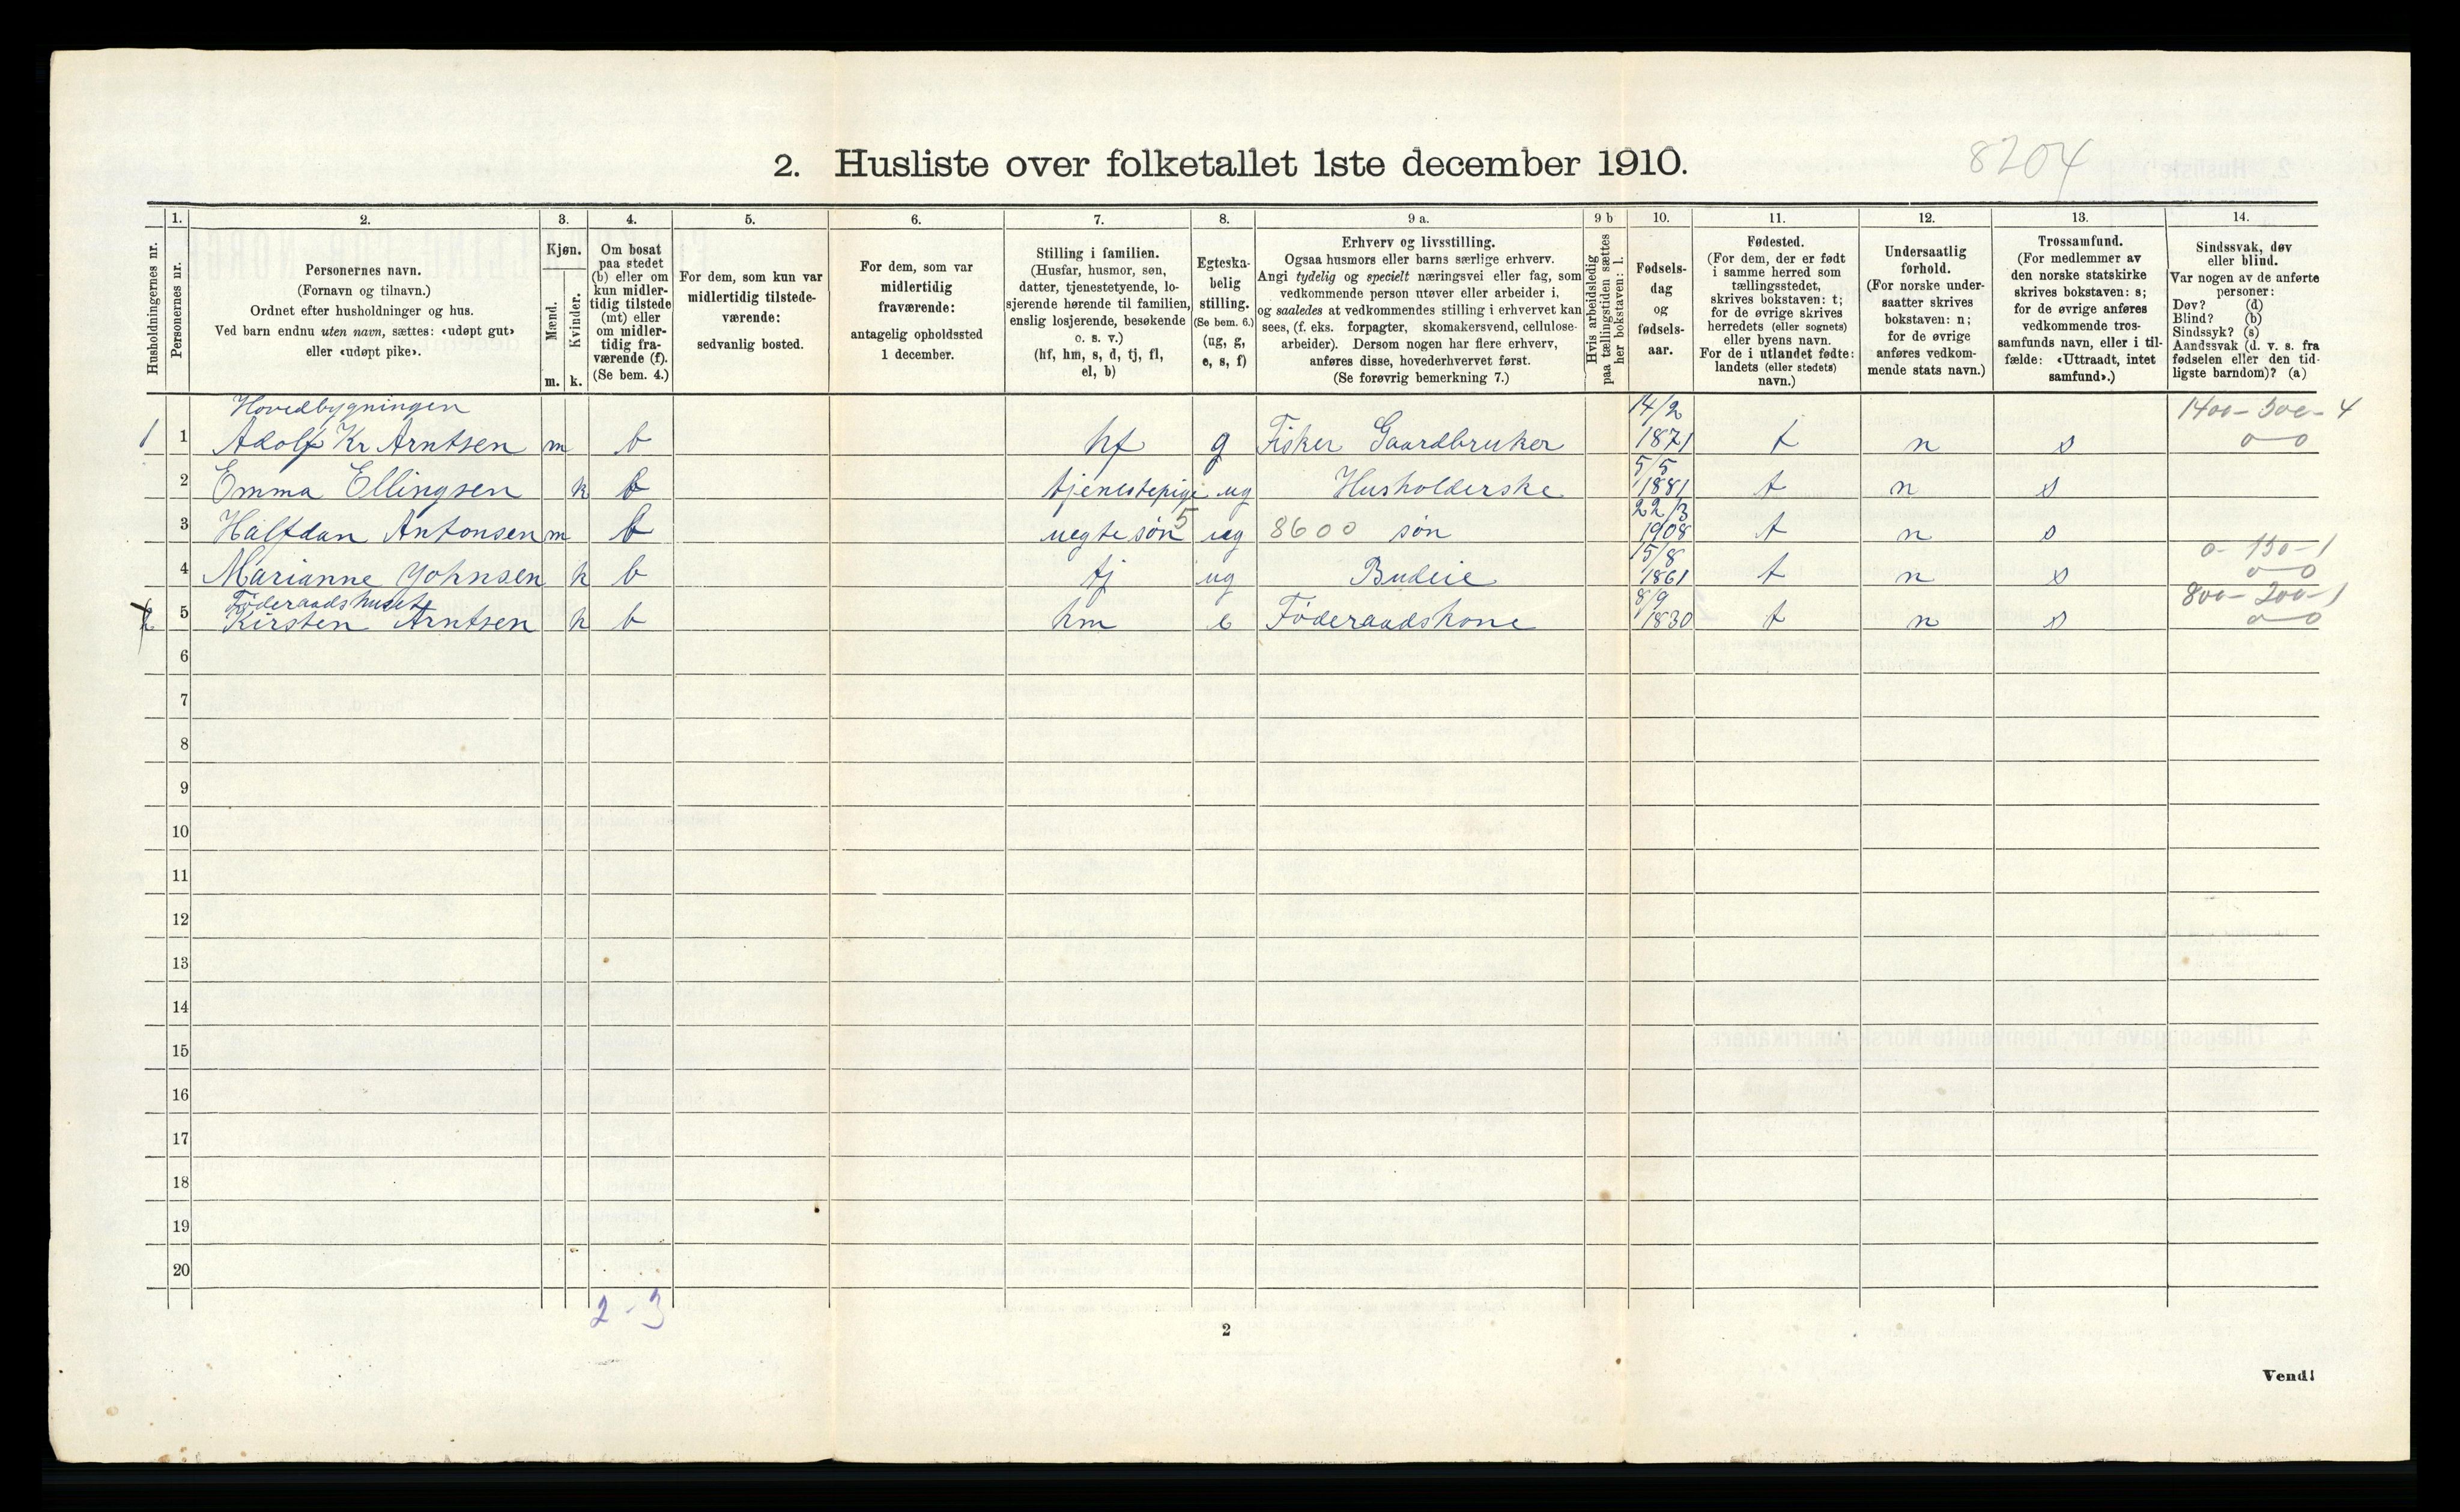 2. Husliste over folketallet 1ste december 1910.
8204
Husholdningernes nr.
1.
Personernes nr.
2.
Personernes navn.
(Fornavn og tilnavn.)
Ordnet efter husholdninger og hus.
Ved barn endnu uten navn, sættes: «udøpt gut»
eller «udøpt pike».
3.
Kjøn.
Mænd.
Kvinder.
m. k.
4.
Om bosat
paa stedet
(b) eller om
kun midler-
tidig tilstede
(mt) eller
om midler-
tidig fra-
værende (f).
(Se bem. 4.)
5.
For dem, som kun var
midlertidig tilstede-
værende:
sedvanlig bosted.
6.
For dem, som var
midlertidig
fraværende:
antagelig opholdssted
1 december.
7.
Stilling i familien.
(Husfar, husmor, søn,
datter, tjenestetyende, lo-
sjerende hørende til familien,
enslig losjerende, besøkende
o. s. v.)
(hf, hm, s, d, tj, fl,
el, b)
8.
Egteska-
belig
stilling.
(Se bem. 6.)
(ug, g,
e, s, f)
9 a.
Erhverv og livsstilling.
Ogsaa husmors eller barns særlige erhverv.
Angi tydelig og specielt næringsvei eller fag, som
vedkommende person utøver eller arbeider i,
og saaledes at vedkommendes stilling i erhvervet kan
sees, (f. eks. forpagter, skomakersvend, cellulose-
arbeider). Dersom nogen har flere erhverv,
anføres disse, hovederhvervet først.
(Se forøvrig bemerkning 7.)
9 b
Hvis arbeidsledig
paa tællingstiden sættes
her bokstaven: l.
10.
Fødsels-
dag
og
fødsels-
aar.
11.
Fødested.
(For dem, der er født
i samme herred som
tællingsstedet,
skrives bokstaven: t;
for de øvrige skrives
herredets (eller sognets)
eller byens navn.
For de i utlandet fødte:
landets (eller stedets)
navn.)
12.
Undersaatlig
forhold.
(For norske under-
saatter skrives
bokstaven: n;
for de øvrige
anføres vedkom-
mende stats navn.)
13.
Trossamfund.
(For medlemmer av
den norske statskirke
skrives bokstaven: s;
for de øvrige anføres
vedkommende tros-
samfunds navn, eller i til-
fælde: «Uttraadt, intet
samfund».)
14.
Sindssvak, døv
eller blind.
Var nogen av de anførte
personer:
Døv? (d)
Blind? (b)
Sindssyk? (s)
Aandssvak (d. v. s. fra
fødselen eller den tid-
ligste barndom)? (a)
Hovedbygningen 14/2 1400-500-4
1 1 Adolf Kr Arntsen m b hf g Fisker Gaardbruker 1871 t n s 0-0
5/5
2 Emma Ellingsen k b tjenestepige ug Husholderske 1881 t n s
5 22/3
3 Halfdan Antonsen m b uegte søn ug 8600 søn 1908 t n s
15/8 0-150-1
4 Marianne Johnsen k b tj ug Budeie 1861 t n s 0-0
Føderaadshuset 8/9 800-200-1
2 5 Kirsten Arntsen k b hm e Føderaadskone 1830 t n s 0-0
6
7
8
9
10
11
12
13
14
15
16
17
18
19
20
2-3
2
Vend!